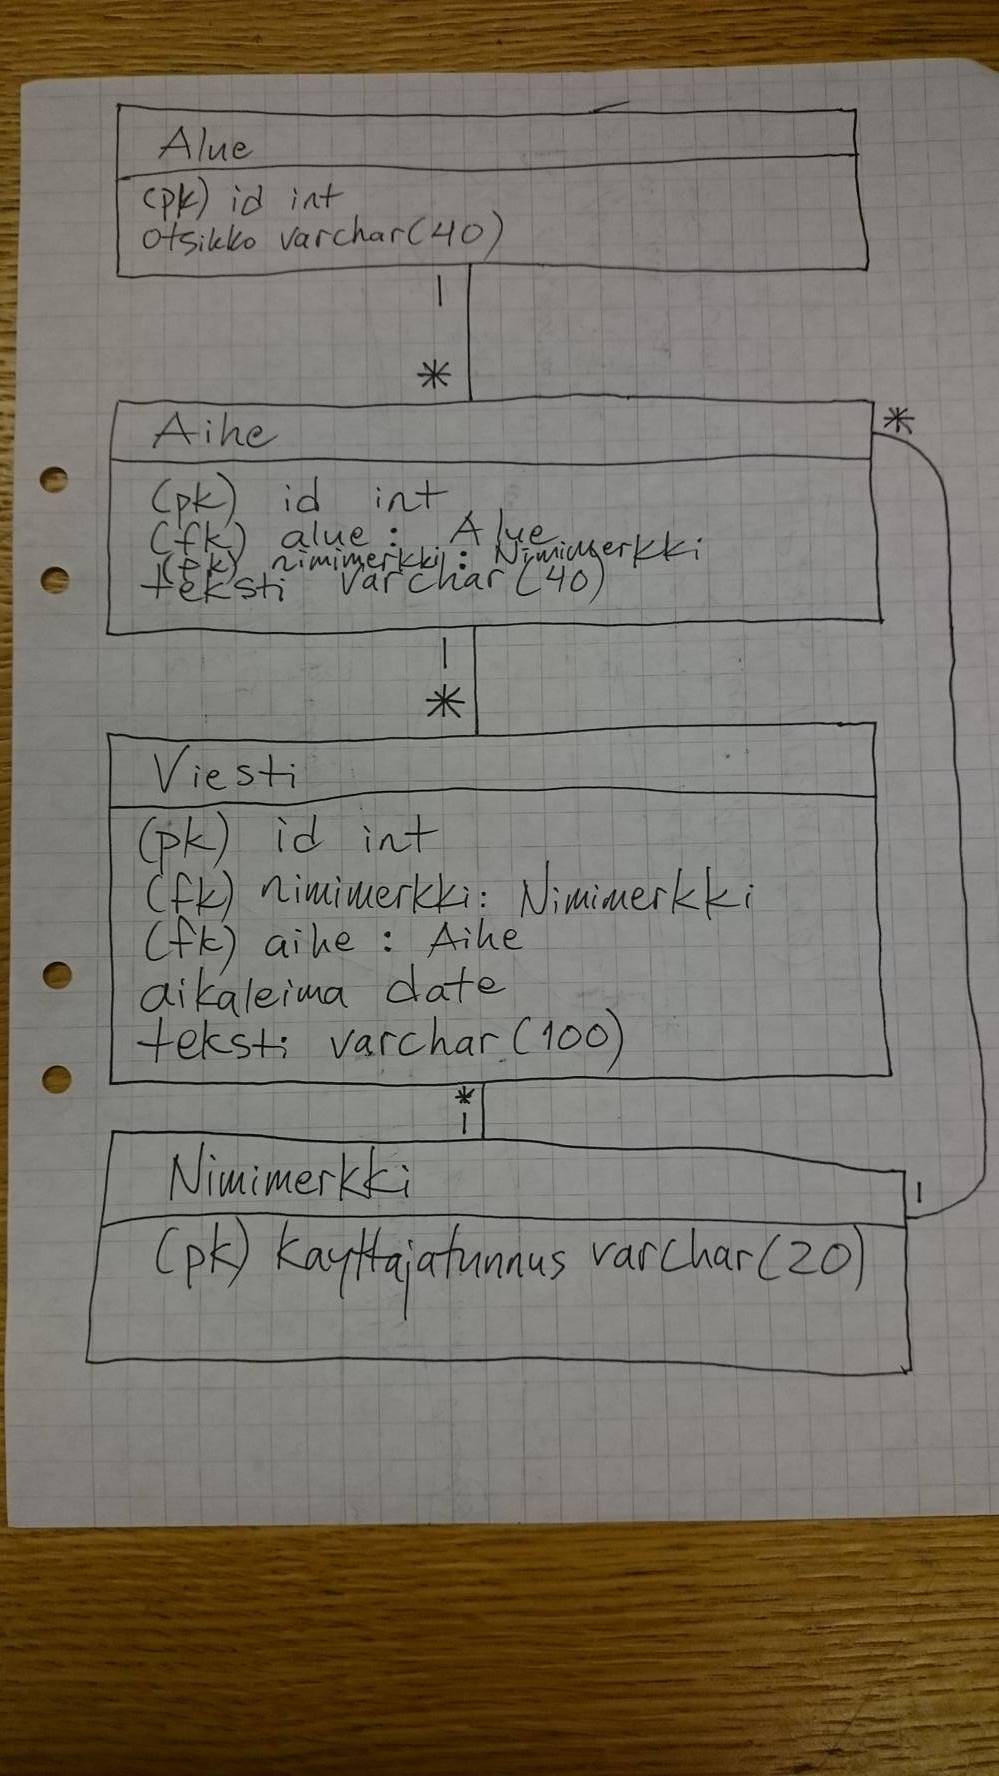 Alue
(pk) id int
otsikko varchar(40)
1
*
Aihe
*
(pk) id int
(fk) alue : Alue
(fk) nimimerkki : Nimimerkki
teksti varchar(40)
1
*
Viesti
(pk) id int
(fk) nimimerkki: Nimimerkki
(fk) aihe : Aihe
aikaleima date
teksti varchar(100)
*
1
Nimimerkki
1
(pk) kayttajatunnus varchar(20)